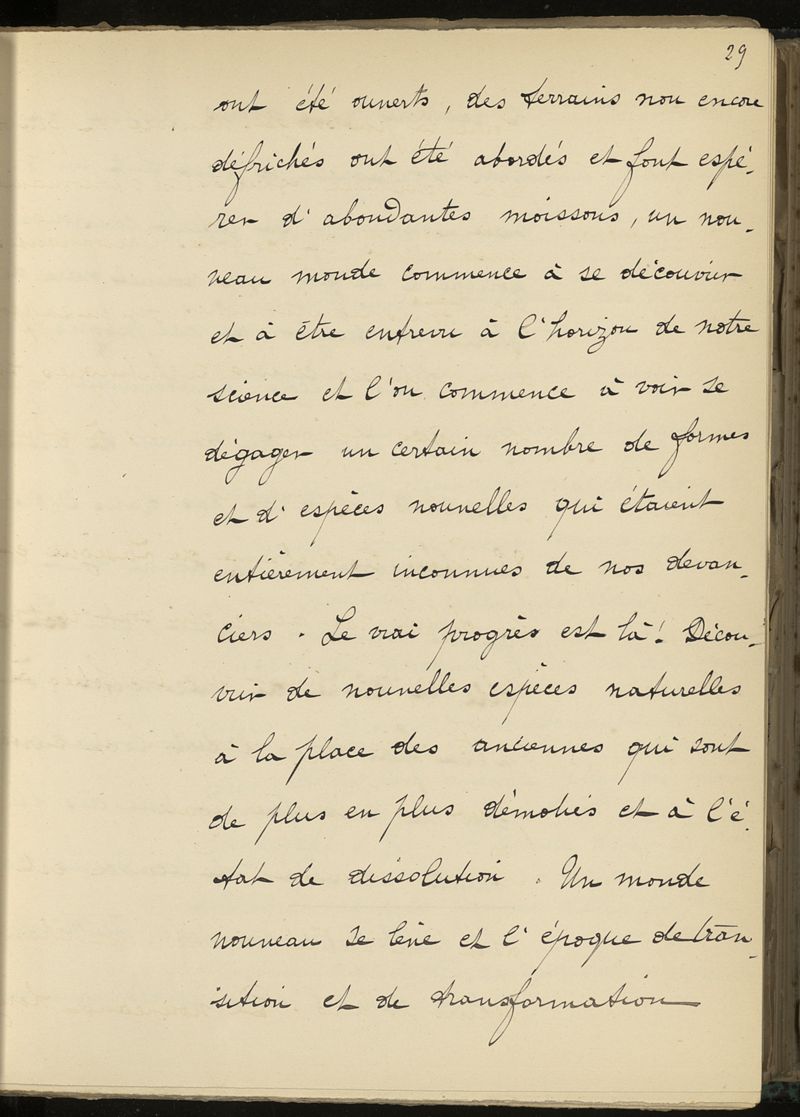 29
ont été ouverts, des terrains non encore
défrichés ont été abordés et font espé-
rer d'abondantes moissons, un nou-
veau monde commence à se découvrir
et à être entrevu à l'horizon de notre
science et l'on commence à voir se
dégager un certain nombre de formes
et d'espèces nouvelles qui étaient
entièrement inconnues de nos devan-
ciers. Le vrai progrès est là! Décou-
vrir de nouvelles espèces naturelles
à la place des anciennes qui sont
de plus en plus démolies et à l'é-
tat de dissolution. Un monde
nouveau se lève et l'époque de tran-
sition et de transformation